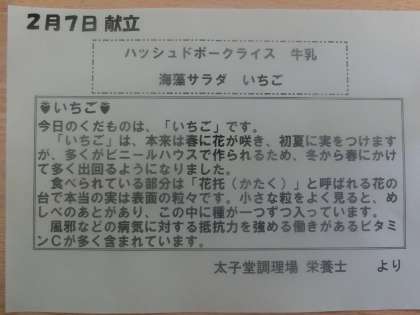 2月7日 献立
ハッシュドポークライス 牛乳
海藻サラダ いちご
いちご
今日のくだものは、「いちご」です。
「いちご」は、本来は春に花が咲き、初夏に実をつけます
が、多くがビニールハウスで作られるため、冬から春にかけ
て多く出回るようになりました。
食べられている部分は「花托（かたく）」と呼ばれる花の
台で本当の実は表面の粒々です。小さな粒をよく見ると、め
しべのあとがあり、この中に種が一つずつ入っています。
風邪などの病気に対する抵抗力を強める働きがあるビタミ
ンCが多く含まれています。
太子堂調理場 栄養士 より